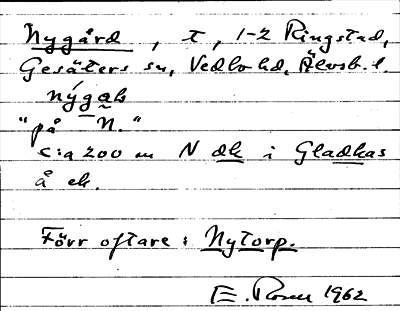 Nygård, t, 1-2 Ringstad,
Gesäters sn, Vedbo hd, Älvsb. l.
nýgaḷs
"på N."
c:a 200 m N dk i Gladkas
å ek.
Förr oftare: Nytorp.
E. Rosen 1962